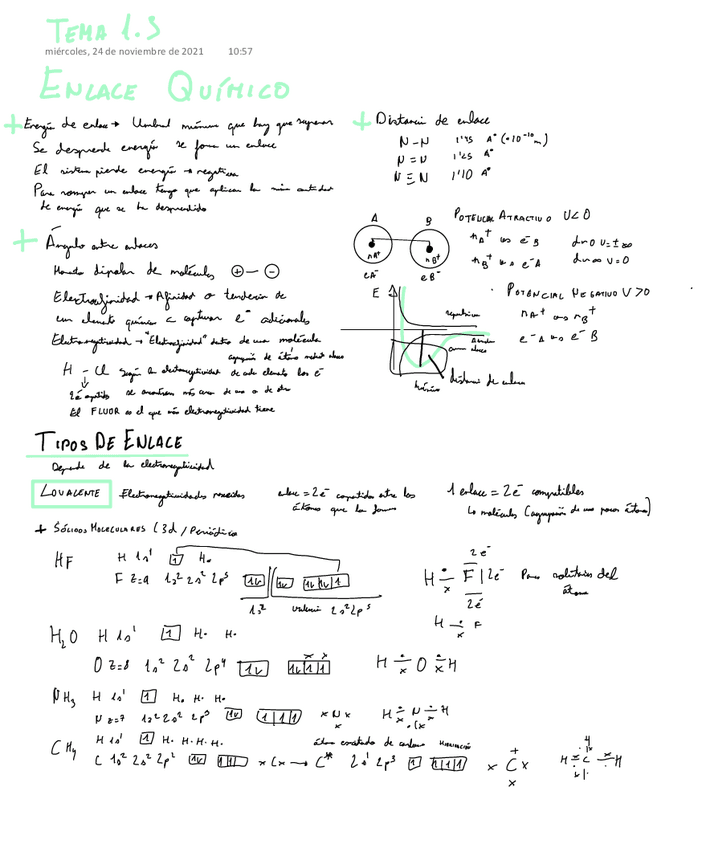 TEMA 1.3
miércoles, 24 de noviembre de 2021 10:57
ENLACE QUÍMICO
+ Energía de enlace → Umbral mínimo que hay que superar
Se desprende energía se forma un enlace
El sistema pierde energía → negativa
Para romper un enlace tengo que aplicar la min cantidad
de energía que se ha desprendido
+ Ángulo entre enlaces
dipolar de moléculas ⊕—⊖
Electroafinidad → Afinidad o tendencia de
un elemento químico a capturar e⁻ adicionales
Electronegatividad → "Electroafinidad" dentro de una molécula
agrupación de átomos
H - Cl según la electronegatividad de cada elemento los e⁻
se encontrarán más cerca de uno o de otro
El FLUOR es el que más electronegatividad tiene
+ Distancia de enlace
N-N 1'45 A° (·10⁻¹⁰ m)
N=N 1'25 A°
N≡N 1'10 A°
A B
nA⁺ nB⁺
eA⁻ eB⁻
POTENCIAL ATRACTIVO U<0
nA⁺ e⁻B
nB⁺ e⁻A
d→∞ U=0
E
repulsivo
distancia de enlace
· POTENCIAL NEGATIVO U>0
nA⁺ nB⁺
e⁻A e⁻B
TIPOS DE ENLACE
Depende de la electronegatividad
COVALENTE Electronegatividades parecidas enlace = 2e⁻ compartidos entre los
átomos que lo forman
1 enlace = 2e⁻ compatibles
Lo moléculas (agrupación de unos pocos átomos)
+ SÓLIDOS MOLECULARES (3d / Periódico
HF H 1s¹ 1 H·
F z=9 1s² 2s² 2p⁵
1s² valencia 2s² 2p⁵
2e⁻
H F | 2e⁻ Pares solitarios del
átomo
2e⁻
H F
H₂O H 1s¹ 1 H· H·
O z=8 1s² 2s² 2p⁴
H O H
NH₃ H 1s¹ 1 H· H· H·
N z=7 1s² 2s² 2p³ x N x
H N H
CH₄ H 1s¹ 1 H· H· H· H·
C 1s² 2s² 2p² x C x → C* 2s¹ 2p³
x C x
H C H